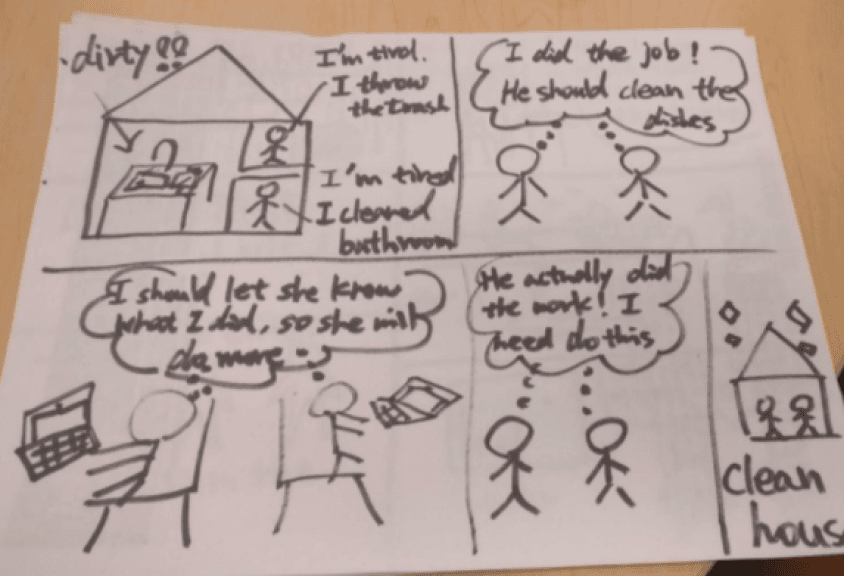 dirty!!
I'm tired.
I throw
the trash
I'm tired
I cleared
bathroom
I did the job!
He should clean the
dishes
I should let she know
what I did, so she will
do more
He actually did
the work! I
need do this
clean
hous